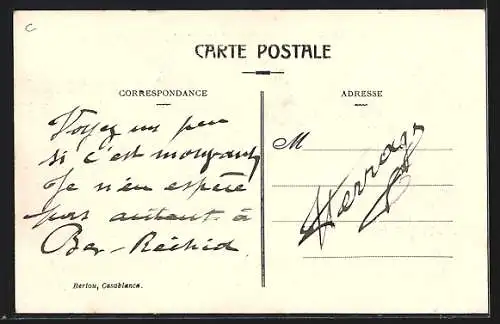 C
CARTE POSTALE
CORRESPONDANCE
ADRESSE
Voyez un peu
si c'est moquant
Je n'en espère
pas autant à
Ber-Réchid.
M
Bertou, Casablanca.